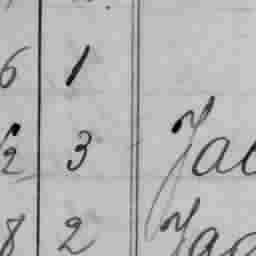 6 1
2 3 Jac
8 2 Jac